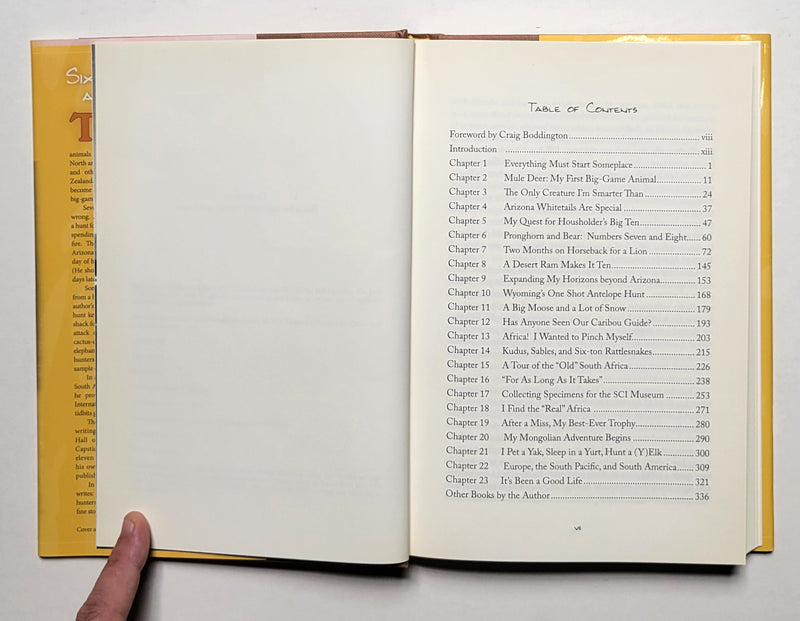 Six
A
T
animals
North ar
and oth
Zealand.
become
big-gam
Sev
wrong.
a hunt fo
spending
fire. Th
Arizona
day of h
(He sho
days late
Son
from a h
author's
hunt ke
shack fo
attack
cactus-s
elephan
hunters
sample
In
South A
he pro
Internat
tidbits p
Th
writing
Hall o
Capstic
eleven
his ow
publish
In
writes:
hunters
fine sto
Cover a
Table of Contents
Foreword by Craig Boddington viii
Introduction xiii
Chapter 1 Everything Must Start Someplace 1
Chapter 2 Mule Deer: My First Big-Game Animal 11
Chapter 3 The Only Creature I'm Smarter Than 24
Chapter 4 Arizona Whitetails Are Special 37
Chapter 5 My Quest for Housholder's Big Ten 47
Chapter 6 Pronghorn and Bear: Numbers Seven and Eight 60
Chapter 7 Two Months on Horseback for a Lion 72
Chapter 8 A Desert Ram Makes It Ten 145
Chapter 9 Expanding My Horizons beyond Arizona 153
Chapter 10 Wyoming's One Shot Antelope Hunt 168
Chapter 11 A Big Moose and a Lot of Snow 179
Chapter 12 Has Anyone Seen Our Caribou Guide? 193
Chapter 13 Africa! I Wanted to Pinch Myself 203
Chapter 14 Kudus, Sables, and Six-ton Rattlesnakes 215
Chapter 15 A Tour of the "Old" South Africa 226
Chapter 16 "For As Long As It Takes" 238
Chapter 17 Collecting Specimens for the SCI Museum 253
Chapter 18 I Find the "Real" Africa 271
Chapter 19 After a Miss, My Best-Ever Trophy 280
Chapter 20 My Mongolian Adventure Begins 290
Chapter 21 I Pet a Yak, Sleep in a Yurt, Hunt a (Y)Elk 300
Chapter 22 Europe, the South Pacific, and South America 309
Chapter 23 It's Been a Good Life 321
Other Books by the Author 336
vii